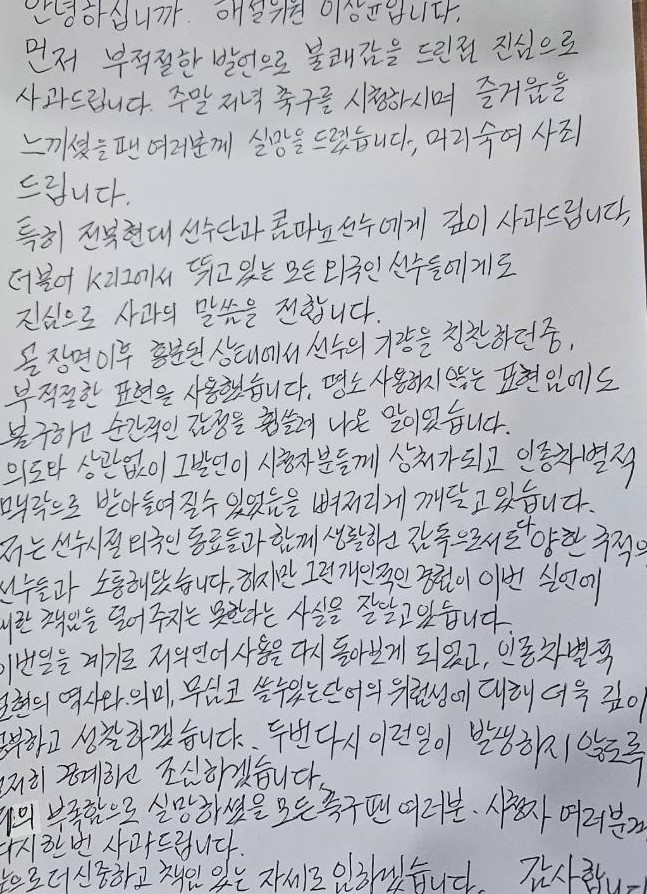 안녕하십니까. 해설위원 이상윤입니다.
먼저 부적절한 발언으로 불쾌감을 드린점 진심으로
사과드립니다. 주말 저녁 축구를 시청하시며 즐거움을
느끼셨을 팬 여러분께 실망을 드렸습니다. 머리숙여 사죄
드립니다.
특히 전북현대 선수단과 콤파뇨선수에게 깊이 사과드립니다,
더불어 K리그에서 뛰고 있는 모든 외국인 선수들에게도
진심으로 사과의 말씀을 전합니다.
골 장면이후 흥분된 상태에서 선수의 기량을 칭찬하던중,
부적절한 표현을 사용했습니다. 평소 사용하지 않는 표현임에도
불구하고 순간적인 감정을 휩쓸려 나온 말이었습니다.
의도와 상관없이 그발언이 시청자분들께 상처가되고 인종차별적
맥락으로 받아들여질수 있었음을 뼈저리게 깨닫고 있습니다.
저는 선수시절 외국인 동료들과 함께 생활하고 감독으로서도 다양한 국적의
선수들과 소통해왔습니다. 하지만 그런개인적인 경험이 이번 실언에
대한 책임을 덜어주지는 못한다는 사실을 잘알고있습니다.
이번일을 계기로 저의언어 사용을 다시 돌아보게 되었고, 인종차별적
표현의 역사와 의미, 무심코 쓸수있는단어의 위험성에 대해 더욱 깊이
공부하고 성찰하겠습니다. 두번다시 이런일이 발생하지 않도록
철저히 경계하고 조심하겠습니다.
저의 부족함으로 실망하셨을 모든축구팬 여러분. 시청자 여러분께
다시한번 사과드립니다.
앞으로 더 신중하고 책임 있는 자세로 임하겠습니다. 감사합니다